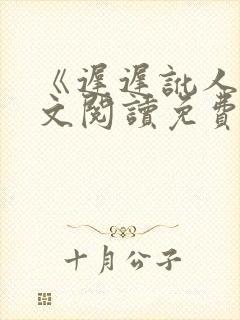 《遲遲訛人
文閱讀免費
十月公子